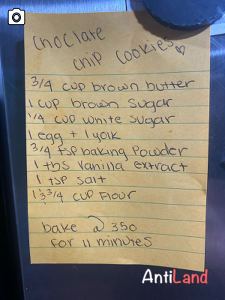 choclate
chip cookies♡
3/4 cup brown butter
1 cup brown sugar
1/4 cup white sugar
1 egg + 1 yolk
3/4 tsp baking powder
1 tbs vanilla extract
1 tsp salt
1 3/4 cup flour
bake @ 350
for 11 minutes
AntiLand